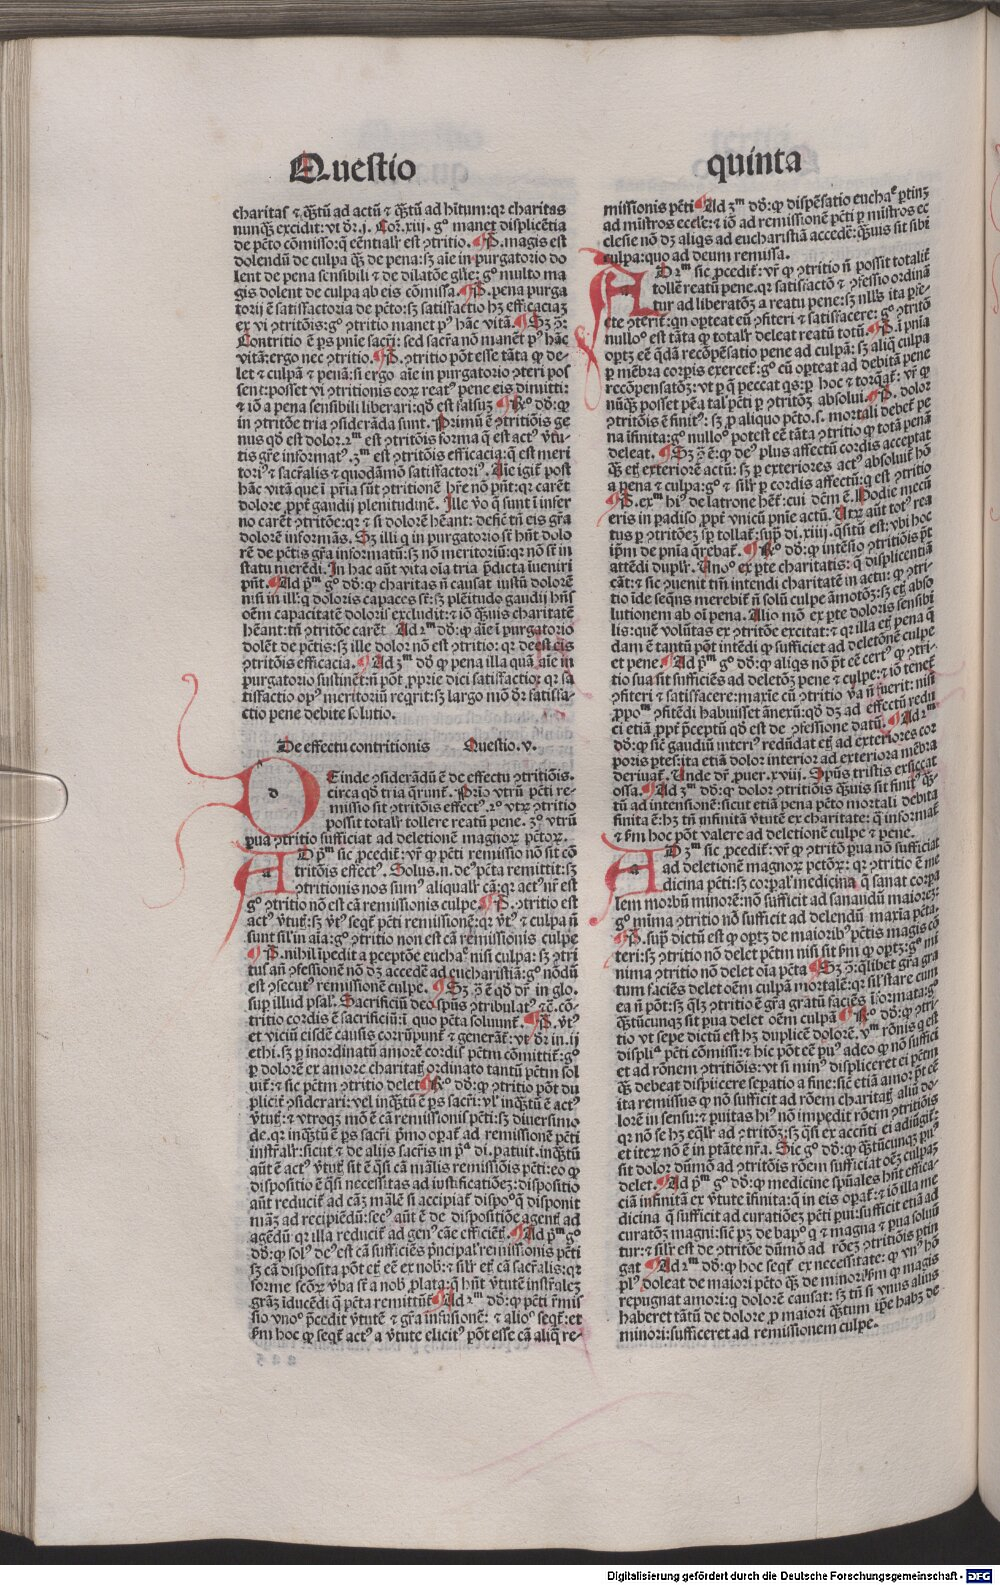 Questio
charitas ⁊ q̃ȝtũ ad actũ ⁊ q̃ȝtũ ad h̃itum: qr charitas
nunqȝ excidit: vt dr̃.j. Cor̃.xiij. gº manet displicẽtia
de pctõ cõmisso: q̃ eẽntialr̃ est ꝯtritio. ¶ P. magis est
dolendũ de culpa q̃ȝ de pena: sȝ aĩe in purgatorio do
lent de pena sensibili ⁊ de dilatõe glie: gº multo ma
gis dolent de culpa ab eis cõmissa. ¶ P. pena purga
torij ẽ satisfactoria de pctõ: sȝ satisfactio hȝ efficaciaȝ
ex vi ꝯtritõis: gº ꝯtritio manet pº hãc vitã. ¶ Sȝ ꝯ̃:
Contritio ẽ ps pnĩe sacr̃i: sed sacr̃a nõ manẽt pº hãc
vitã: ergo nec ꝯtritio. ¶ P. ꝯtritio põt esse tãta ꝙ de-
let ⁊ culpã ⁊ penã: si ergo aĩe in purgatorio ꝯteri pos
sent: posset vi ꝯtritionis eorȝ reatº pene eis dimitti:
⁊ iõ a pena sensibili liberari: qd̃ est falsuȝ ¶ Rº dd̃: ꝙ
in ꝯtritõe tria ꝯsiderãda sunt. Primũ ẽ ꝯtritiõis ge
nus qd̃ est dolor. 2ᵐ est ꝯtritõis forma q̃ est actº v̾tu-
tis gr̃e informatº. 3ᵐ est ꝯtritõis efficacia: q̃ est meri
toriº ⁊ sacr̃alis ⁊ quodãmõ satisfactoriº. Aĩe igit̃ post
hãc vitã que ĩ pr̃ia sũt ꝯtritionẽ hr̃e nõ pñt: qr carẽt
dolore ꝓpt̾ gaudij plenitudinẽ. Ille vº q̃ sunt ĩ infer
no carẽt ꝯtritõe: qr ⁊ si dolorẽ hẽant: deficit tñ eis gr̃a
dolorẽ informãs. Sȝ illi q̃ in purgatorio st̃ hñt dolo
rẽ de pctĩs gr̃a informatũ: sȝ nõ meritoriũ: qr nõ st̃ in
statu merẽdi. In hac aũt vita oĩa tria p̃dicta ĩueniri
pñt. ¶ Ad p̃ᵐ gº dd̃: ꝙ charitas ñ causat istũ dolorẽ
nisi in ill: q̃ doloris capaces st̃: sȝ plẽitudo gaudij hñs
oẽm capacitatẽ doloris excludit: ⁊ iõ q̃ȝuis charitatẽ
hẽant: tñ ꝯtritõe carẽt Ad 2ᵐ dd̃: ꝙ aĩe ĩ purgatorio
dolẽt de pctĩs: sȝ ille dolor nõ est ꝯtritio: qr deest eis
ꝯtritõis efficacia. ¶ Ad 3ᵐ dd̃ ꝙ pena illa quã aĩe in
purgatorio sustinẽt: ñ põt ꝓprie dici satisfactio: qr sa
tisfactio opº meritoriũ reqrit: sȝ largo mõ dr̃ satisfa-
ctio pene debite solutio.
De effectu contritionis Questio.v.
d
Einde ꝯsiderãdũ ẽ de effectu ꝯtritiõis.
circa qd̃ tria q̃runt̃. Prio vtrũ pcti re-
missio sit ꝯtritõis effectº. 2º vtrȝ ꝯtritio
possit totalr̃ tollere reatũ pene. 3º vtrũ
ꝑua ꝯtritio sufficiat ad deletionẽ magnorȝ pctõrȝ.
a
D p̃ᵐ sic ꝓcedit̃: vr̃ ꝙ pcti remissio nõ sit cõ
tritõis effectº. Solus.n. deº pcta remittit: sȝ
ꝯtritionis nos sumº aliqualr̃ cã: qr actº nr̃ est
gº ꝯtritio nõ est cã remissionis culpe. ¶ P. ꝯtritio est
actº v̾tut̃: sȝ v̾tº seqt̃ pcti remissionẽ: qr v̾tº ⁊ culpa ñ
sunt sil̃ in aĩa: gº ꝯtritio non est cã remissionis culpe
¶ P. nihil ĩpedit a ꝑceptõe eucha̾ nisi culpa: sȝ ꝯtri
tuº añ ꝯfessionẽ nõ dȝ accedẽ ad eucharistiã: gº nõdũ
est ꝯsecutº remissionẽ culpe. ¶ Sȝ ꝯ̾ ẽ qd̃ dr̃ in glo.
sup̃ illud psal̃. Sacrificiũ deo spũs ꝯtribulatº ⁊c̃. cõ-
tritio cordis ẽ sacrificiũ: ĩ quo pcta soluunt̃. ¶ P. v̾tº
et viciũ eisdẽ causis corrũpunt̃ ⁊ generãt̃: vt dr̃ in.ij
ethi. sȝ p inordinatũ amorẽ cordis pctm̃ cõmittit̃: gº
p dolorẽ ex amore charitat̃ ordinato tantũ pctm̃ sol
uit̃: ⁊ sic pctm̃ ꝯtritio delet ¶ Rº dd̃: ꝙ ꝯtritio põt du
plicit̾ ꝯsiderari: vel inq̃ȝtũ ẽ ps sacr̃i: vl̃ inq̃ȝtũ ẽ actº
v̾tut̃: ⁊ vtroqȝ mõ ẽ cã remissionis pcti: sȝ diuersimo
de. qr inq̃ȝtũ ẽ ps sacr̃i p̃mo opat̃ ad remissionẽ pcti
instr̃alr̃: sicut ⁊ de alijs sacr̃is in pº di. patuit. inq̃ȝtũ
aũt ẽ actº v̾tut̃ sit ẽ q̃si cã mãlis remissiõis pcti: eo ꝙ
dispositio ẽ q̃si necessitas ad iustificatiõeȝ: dispositio
aũt reducit̃ ad cãȝ mãlẽ si accipiat̃ dispoº q̃ disponit
mãȝ ad recipiẽdũ: secº aũt ẽ de dispositiõe agent̃ ad
agẽdũ: qr illa reducit̃ ad genº cãe efficiẽt̃. ¶ Ad p̃ᵐ gº
dd̃: ꝙ solº deº est cã sufficiẽs p̃ncipal̃ remissionis pcti
sȝ cã disposita põt et̃ eẽ ex nob̃: ⁊ silr̃ et̃ cã sacr̃alis: qr
forme sc̃orȝ v̾ba st̃ a nob̃ ꝓlata: q̃ hñt v̾tutẽ instr̃aleȝ
gr̃aȝ ĩducẽdi q̃ pcta remittũt̃ ¶ Ad 2ᵐ dd̃: ꝙ pcti r̃mis
sio vnoº p̃cedit v̾tutẽ ⁊ gr̃a infusionẽ: ⁊ alioº seqt̃: et
ẜm hoc ꝙ seqt̃ actº a v̾tute elicitº põt esse cã aliq̃ re-
quinta
missionis pcti ¶ Ad 3ᵐ dd̃: ꝙ dispẽsatio eucha̾ ptinȝ
ad mĩstros eccle̾: ⁊ iõ ad remissionẽ pcti p mĩstros ec
clesie nõ dȝ aliqs ad eucharistiã accedẽ: q̃ȝuis sit sibi
culpa: quo ad deum remissa.
A
D 2ᵐ sic ꝓcedit̃: vr̃ ꝙ ꝯtritio ñ possit totalit̾
tollẽ reatũ pene. qr satisfactõ ⁊ ꝯfessio ordinã
tur ad liberatõȝ a reatu pene: sȝ nllº ita pfe-
cte ꝯterit̃: qn oꝑteat eũ ꝯfiteri ⁊ satisfacere: gº ꝯtritõ
nulloº est tãta ꝙ totalr̃ deleat reatũ totũ. ¶ P. ĩ pnia
optȝ eẽ q̃dã recõpẽsatio pene ad culpã: sȝ aliq̃ culpa
p mẽbra corpis exercet̃: gº cũ oꝑteat ad debitã pene
recõpensatõȝ: vt p q̃ peccat qs: p hoc ⁊ torq̃at̃: vr̃ ꝙ
nũqȝ posset pẽa tal̃ pcti p ꝯtritõȝ absolui. ¶ P. dolor
ꝯtritõis ẽ finitº: sȝ ꝓ aliquo pctõ.s. mortali debet̃ pe
na ĩfinita: gº nulloº potest eẽ tãta ꝯtritio ꝙ totã penã
deleat. ¶ Sȝ ꝯ̾ ẽ: ꝙ deº plus affectũ cordis acceptat
q̃ȝ et̃ exteriorẽ actũ: sȝ p exteriores actº absoluit̃ hõ
a pena ⁊ culpa: gº ⁊ silr̃ p cordis affectũ: q̃ est ꝯtritio
¶ P. exᵐ hiº de latrone hẽt̃: cui dc̃m ẽ. Hodie mecũ
eris in padiso ꝓpt̾ vnicũ pnĩe actũ. Utrȝ aũt totº rea
tus p ꝯtritõeȝ sp̃ tollat̃: sup̃ di.xiiij. q̃situ̾ est: vbi hoc
ip̃m de pnĩa q̃rebat̃. ¶ Rº dd̃: ꝙ intẽsio ꝯtritiõis põt
attẽdi duplr̃. Unoº ex pte charitatis: q̃ displicentiã
cãt: ⁊ sic ꝯuenit tm̃ intendi charitatẽ in actu: ꝙ ꝯtri-
tio ĩde seq̃ns merebit̃ ñ solũ culpe ãmotõȝ: sȝ et̃ abso
lutionem ab oĩ pena. Alio mõ ex pte doloris sensibi
lis: quẽ volũtas ex ꝯtritõe excitat: ⁊ qr illa et̃ pena q̃
dam ẽ tantũ põt intẽdi ꝙ sufficiet ad deletõnẽ culpe
et pene ¶ Ad p̃ᵐ gº dd̃: ꝙ aliqs nõ põt eẽ certº ꝙ ꝯtri-
tio sua sit sufficiẽs ad deletõȝ pene ⁊ culpe: ⁊ iõ tenet̃
ꝯfiteri ⁊ satisfacere: maxie cũ ꝯtritio va̾ ñ fuerit: nisi
ꝓpoᵐ ꝯfitẽdi habuisset ãnexũ: qd̃ dȝ ad effectũ redu
ci etiã ꝓpt̾ p̃ceptũ qd̃ est de ꝯfessione datũ. ¶ Ad 2ᵐ
dd̃: ꝙ sic̃ gaudiũ interiº redũdat et̃ ad exteriores cor
poris ptes: ita etiã dolor interior ad exteriora mẽbra
deriuat̃. Unde dr̃ ꝓuer.xviij. Spũs tristis exsiccat
ossa. ¶ Ad 3ᵐ dd̃: ꝙ dolor ꝯtritiõis q̃ȝuis sit finitº q̃ȝ-
tũ ad intensionẽ: sicut etiã pena pctõ mortali debita
finita ẽ: hȝ tñ infinitã v̾tutẽ ex charitate: q̃ informat̃
⁊ ẜm hoc põt valere ad deletionẽ culpe ⁊ pene.
a
D 3ᵐ sic ꝓcedit̃: vr̃ ꝙ ꝯtritõ ꝑua nõ sufficiat
ad deletionẽ magnorȝ pctõrȝ: qr ꝯtritio ẽ me
dicina pcti: sȝ corpal̃ medicina q̃ sanat corpa
lem morbũ minorẽ: nõ sufficit ad sanandũ maiorẽȝ:
gº mĩma ꝯtritio nõ sufficit ad delendũ maxĩa pctã.
¶ P. sup̃ dictũ est ꝙ optȝ de maioribº pctis magis cõ
teri: sȝ ꝯtritio nõ delet pctm̃ nisi sit ẜm ꝙ optȝ: gº mi
nima ꝯtritio nõ delet oĩa pcta ¶ Sȝ ꝯ̾: q̃libet gr̃a gra
tum faciẽs delet oẽm culpã mortalẽ: qr sil̃ stare cum
ea ñ põt: sȝ q̃lȝ ꝯtritio ẽ gr̃a gratũ faciẽs ĩformata: gº
q̃ȝtũcunqȝ sit ꝑua delet oẽm culpã ¶ Rº dd̃: ꝙ ꝯtri-
tio vt sepe dictũ est hȝ duplicẽ dolorẽ. vᵐ rõnis q̃ est
displia pcti cõmissi: ⁊ hic põt eẽ ꝑuº adeo ꝙ nõ suffici
et ad rõnem ꝯtritiõis: vt si minº displiceret ei pctm̃
q̃ȝ debeat displicere sepatio a fine: sic̃ etiã amor põt eẽ
ita remissus ꝙ nõ sufficit ad rõem charitat̃ aliũ do-
lorẽ in sensu: ⁊ ꝑuitas hiº nõ impedit rõem ꝯtritiõis
qr nõ se hȝ eqlr̃ ad ꝯtritõȝ: sȝ q̃si ex accñti ei adiũgit̃:
et iterȝ nõ ẽ in ptãte nr̃a. Sic gº dd̃: ꝙ q̃ȝtũcunqȝ ꝑuº
sit dolor dũmõ ad ꝯtritõis rõem sufficiat oẽȝ culpaȝ
delet. ¶ Ad p̃ᵐ gº dd̃: ꝙ medicine spũales hñt effica-
ciã infinitã ex v̾tute ĩfinita: q̃ in eis opat̃: ⁊ iõ illa me
dicina q̃ sufficit ad curatiõeȝ pcti ꝑui: sufficit etiã ad
curatõȝ magni: sic̃ pȝ de bapº q̃ ⁊ magna ⁊ ꝑua soluũ
tur: ⁊ silr̃ est de ꝯtritõe dũmõ ad rõeȝ ꝯtritiõis ptin
gat ¶ Ad 2ᵐ dd̃: ꝙ hoc seqt̃ ex necessitate: ꝙ vnº hõ
plº doleat de maiori pctõ q̃ȝ de minori: ẜm ꝙ magis
repugnat amori: q̃ dolorẽ causat: sȝ tñ si vnus alius
haberet tãtũ de dolore ꝓ maiori q̃ȝtum ip̃e habȝ de
minori: sufficeret ad remissionem culpe.
Digitalisierung gefördert durch die Deutsche Forschungsgemeinschaft - DFG